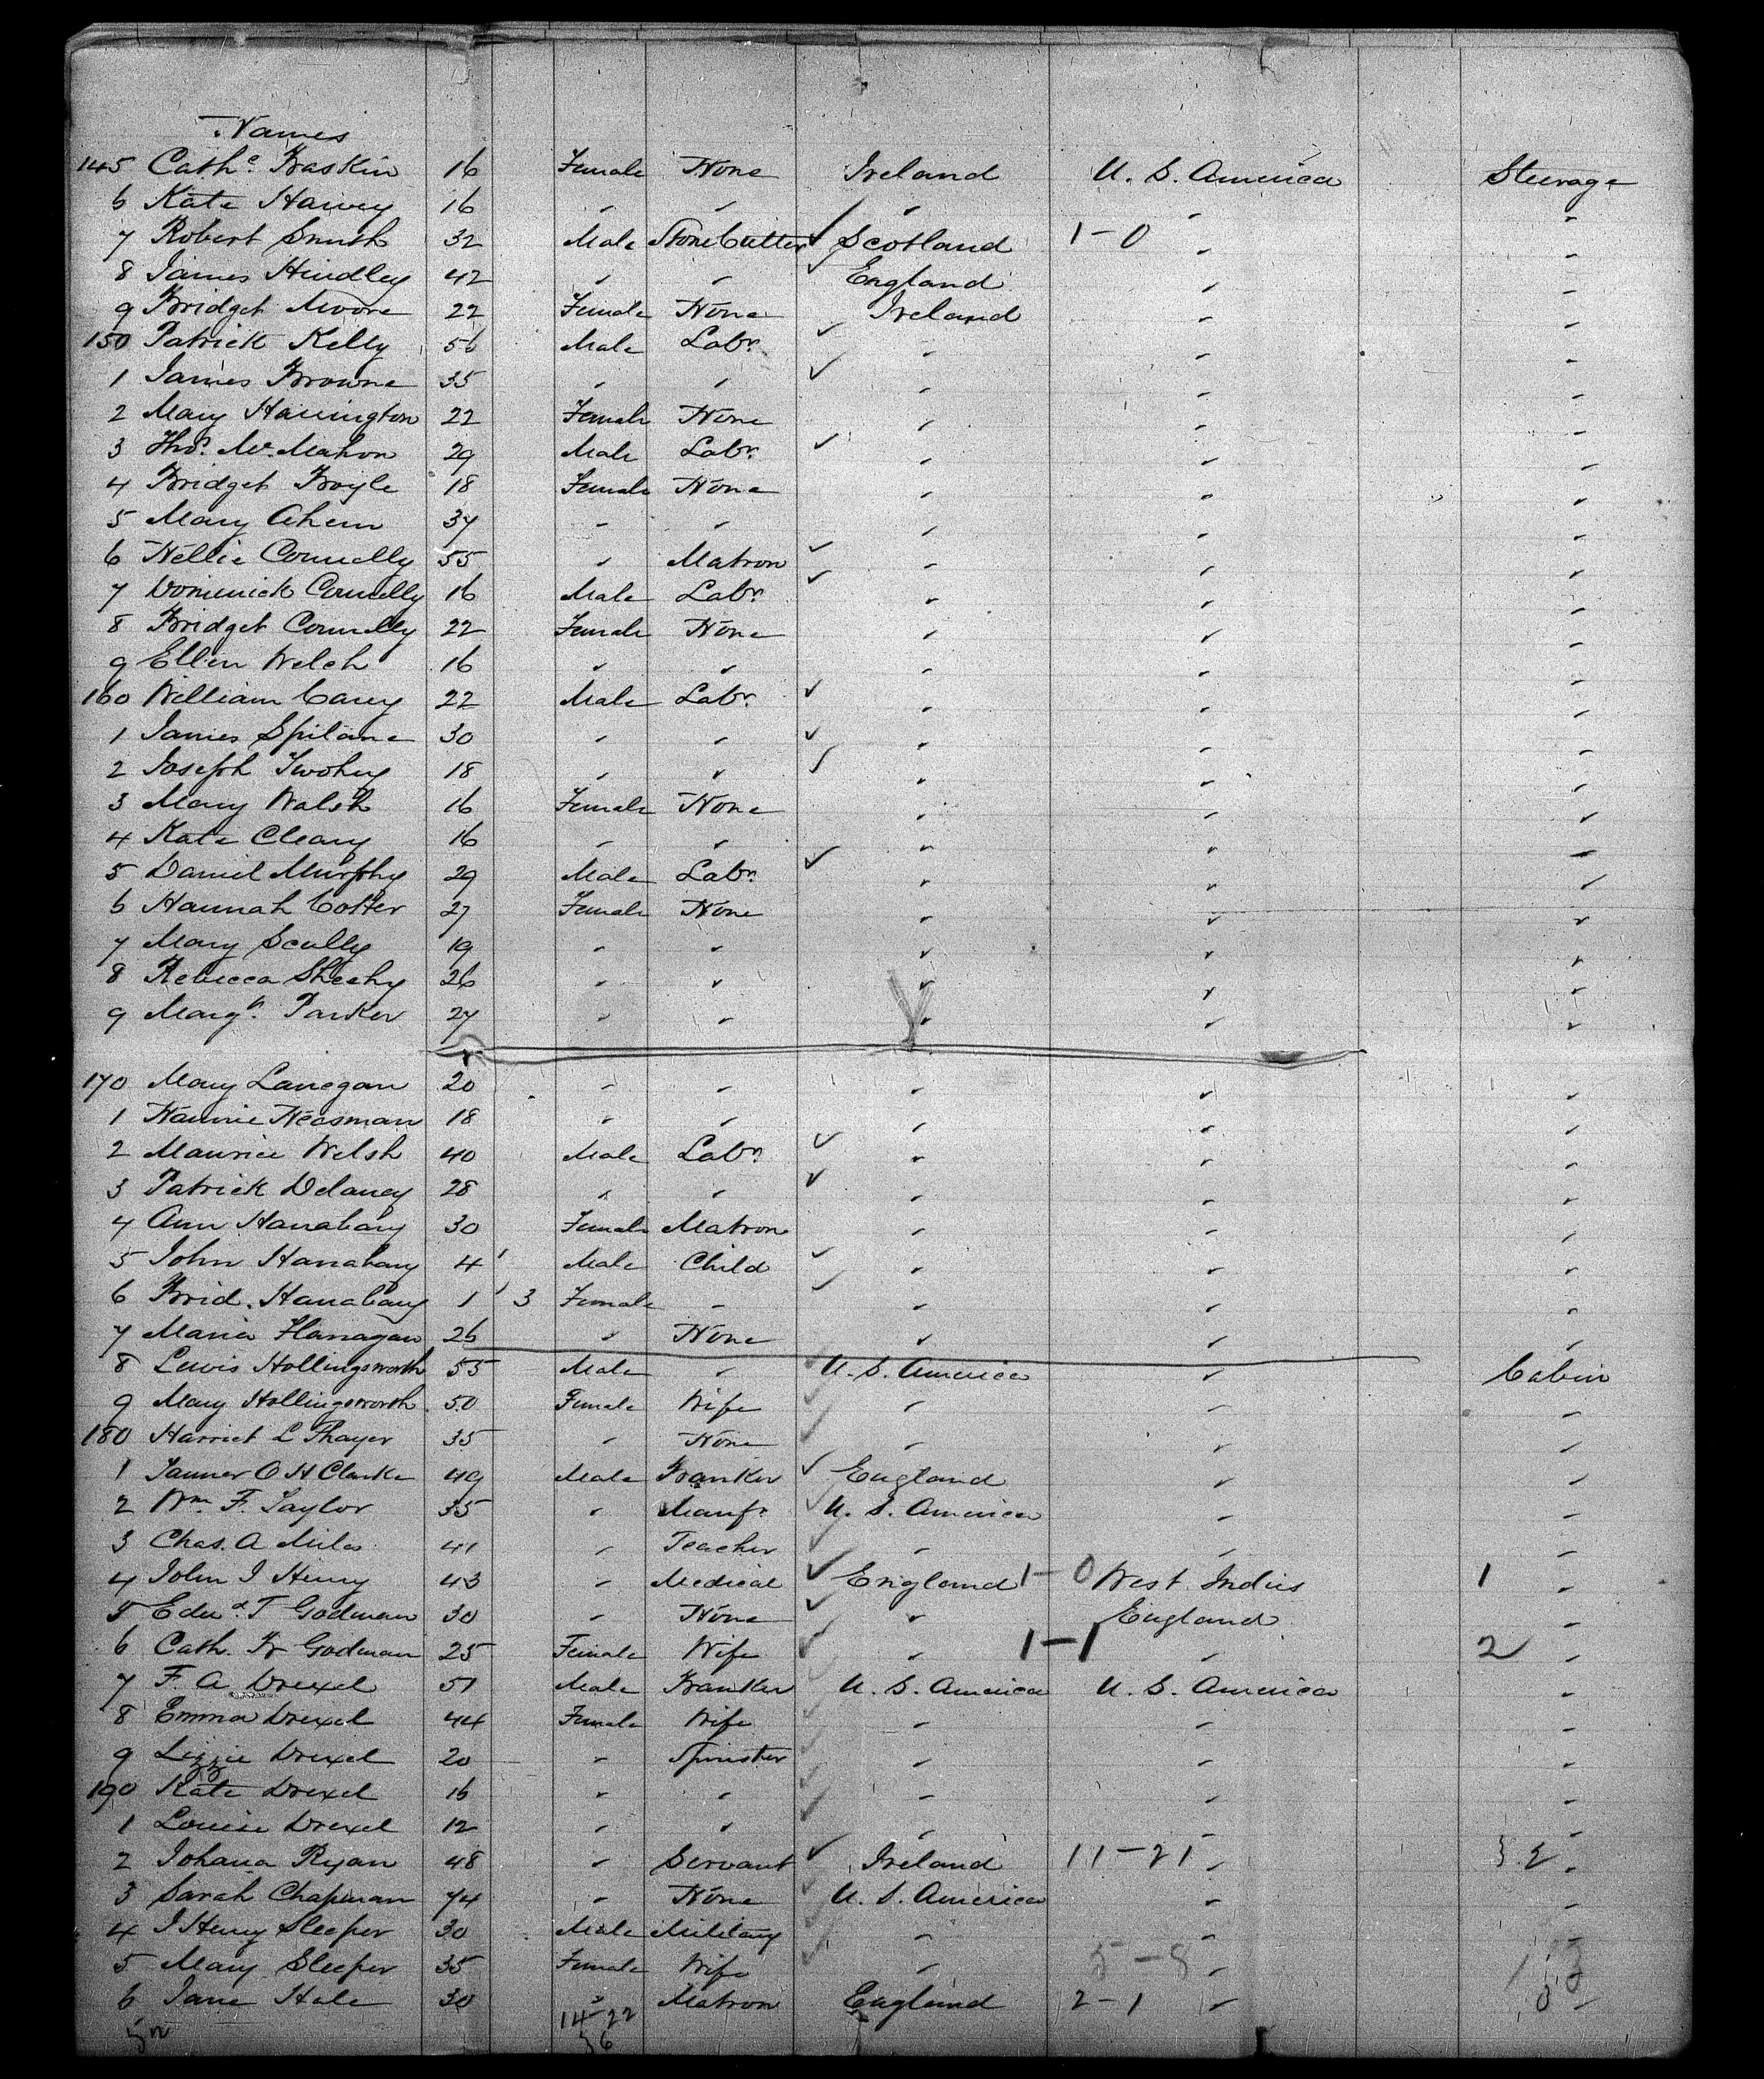 Names
145 Cathe. Baskin 16 Female None Ireland U. S. America Steerage
6 Kate Harvey 16 " " " " "
7 Robert Smith 32 Male Stone Cutter Scotland 1-0 " "
8 James Hindley 42 " " England " "
9 Bridget Moore 22 Female None Ireland " "
150 Patrick Kelly 56 Male Labr. " " "
1 James Browne 35 " " " " "
2 Mary Harrington 22 Female None " " "
3 Thos. McMahon 29 Male Labr. " " "
4 Bridget Boyle 18 Female None " " "
5 Mary Ahern 37 " " " " "
6 Nellie Connelly 55 " Matron " " "
7 Dominick Connelly 16 Male Labr. " " "
8 Bridget Connelly 22 Female None " " "
9 Ellen Welch 16 " " " " "
160 William Carey 22 Male Labr. " " "
1 James Spilane 30 " " " " "
2 Joseph Twohey 18 " " " " "
3 Mary Walsh 16 Female None " " "
4 Kate Cleary 16 " " " " "
5 Daniel Murphy 29 Male Labr. " " "
6 Hannah Cotter 27 Female None " " "
7 Mary Scully 19 " " " " "
8 Rebecca Sheehy 26 " " " " "
9 Margt. Parker 27 " " " " "
170 Mary Lanegan 20 " " " " "
1 Nannie Neasman 18 " " " " "
2 Maurice Welsh 40 Male Labr. " " "
3 Patrick Delaney 28 " " " " "
4 Ann Hanabary 30 Female Matron " " "
5 John Hanabary 4 Male Child " " "
6 Brid. Hanabary 1 3 Female " " " "
7 Maria Flanagan 26 " None " " "
8 Lewis Hollingsworth 55 Male " U. S. America " Cabin
9 Mary Hollingsworth 50 Female Wife " " "
180 Harriet L Thayer 35 " None " " "
1 Tanner O H Clarke 49 Male Banker England " "
2 Wm F. Taylor 35 " Manfr. U. S. America " "
3 Chas. A Miles 41 " Teacher " " "
4 John J Henry 43 " Medical England 1-0 West Indies 1 "
5 Edwd. T Godman 30 " None " England "
6 Cath. B Godman 25 Female Wife " 1-1 " 2 "
7 F. A Drexel 51 Male Banker U. S. America U. S. America "
8 Emma Drexel 44 Female Wife " " "
9 Lizzie Drexel 20 " Spinster " " "
190 Kate Drexel 16 " " " " "
1 Louise Drexel 12 " " " " "
2 Johana Ryan 48 " Servant Ireland 11-21 " 32 "
3 Sarah Chapman 74 " None U. S. America " "
4 J Henry Sleeper 30 Male Military " " "
5 Mary Sleeper 35 Female Wife " 5-8 " "
6 Jane Hale 30 " Matron England 2-1 " 3 "
52 14-22
36